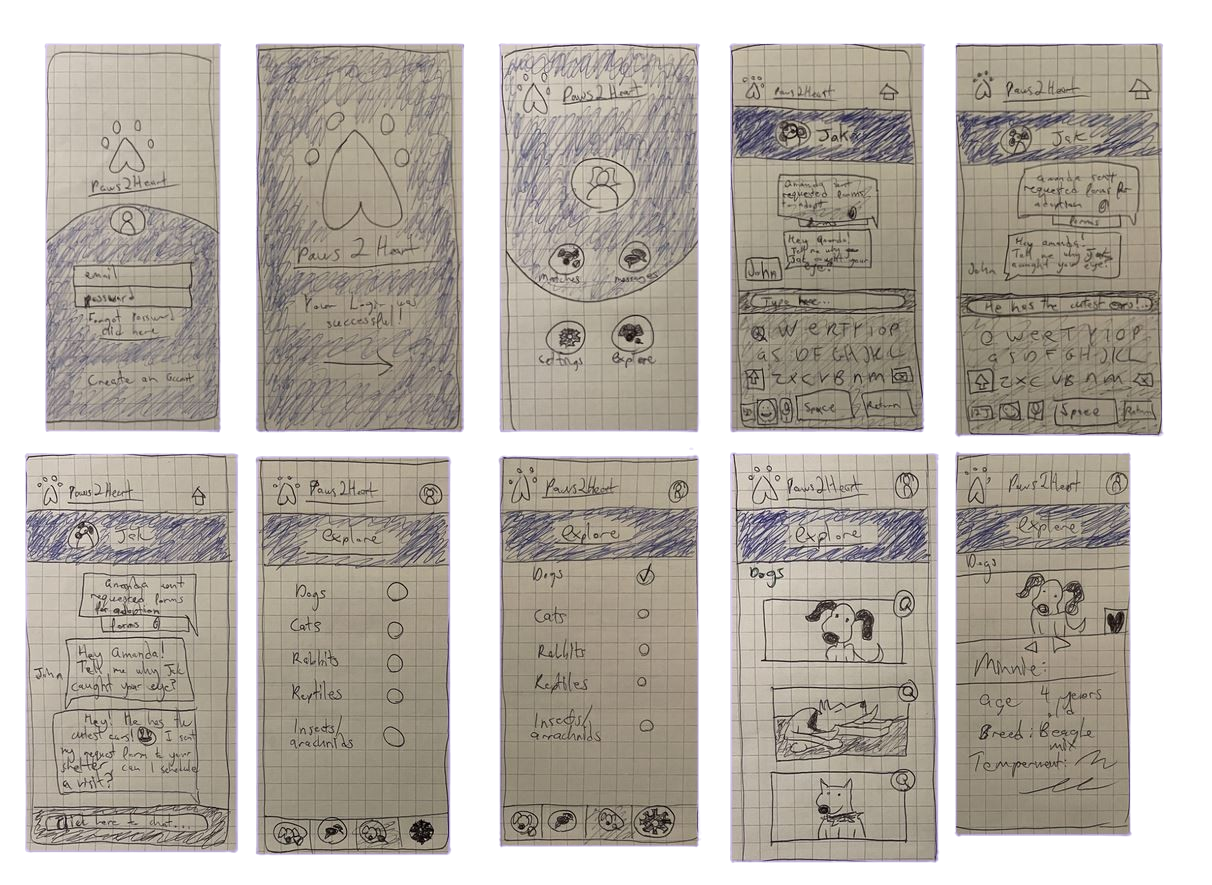 Paws2Heart
email
password
Forgot Password
click here
Create an
Paws 2 Heart
Your Login was
successful!
Paws2Heart
matches
messages
Settings
Explore
Paws2Heart
Jake
Amanda sent
requested forms
to adopt
forms
Hey Amanda!
Tell me why
Jak caught your
eye?
John
Type here...
QWERTYIOP
ASDFGHJKL
ZXCVBNM
Space
Return
Paws2Heart
Jak
Amanda sent
requested forms for
adoption
forms
Hey amanda!
Tell me why Jak
caught your eye?
John
He has the cutest ears!..
QWERTYIOP
ASDFGHJKL
ZXCVBNM
123
Space
Return
Paws2Heart
Jak
Amanda sent
requested forms
for adoption
forms
Hey Amanda!
Tell me why Jak
caught your eye?
John
Hey! He has the
cutest ears! I sent
my request form to your
shelter can I schedule
a visit?
Click here to chat....
Paws2Heart
explore
Dogs
Cats
Rabbits
Reptiles
Insects/
arachnids
Paws2Heart
explore
Dogs
Cats
Rabbits
Reptiles
Insects/
arrachnids
Paws2Heart
explore
Dogs
Paws2Heart
explore
Dogs
Minnie:
age 4 years
old
Breed: Beagle
mix
Temperment: